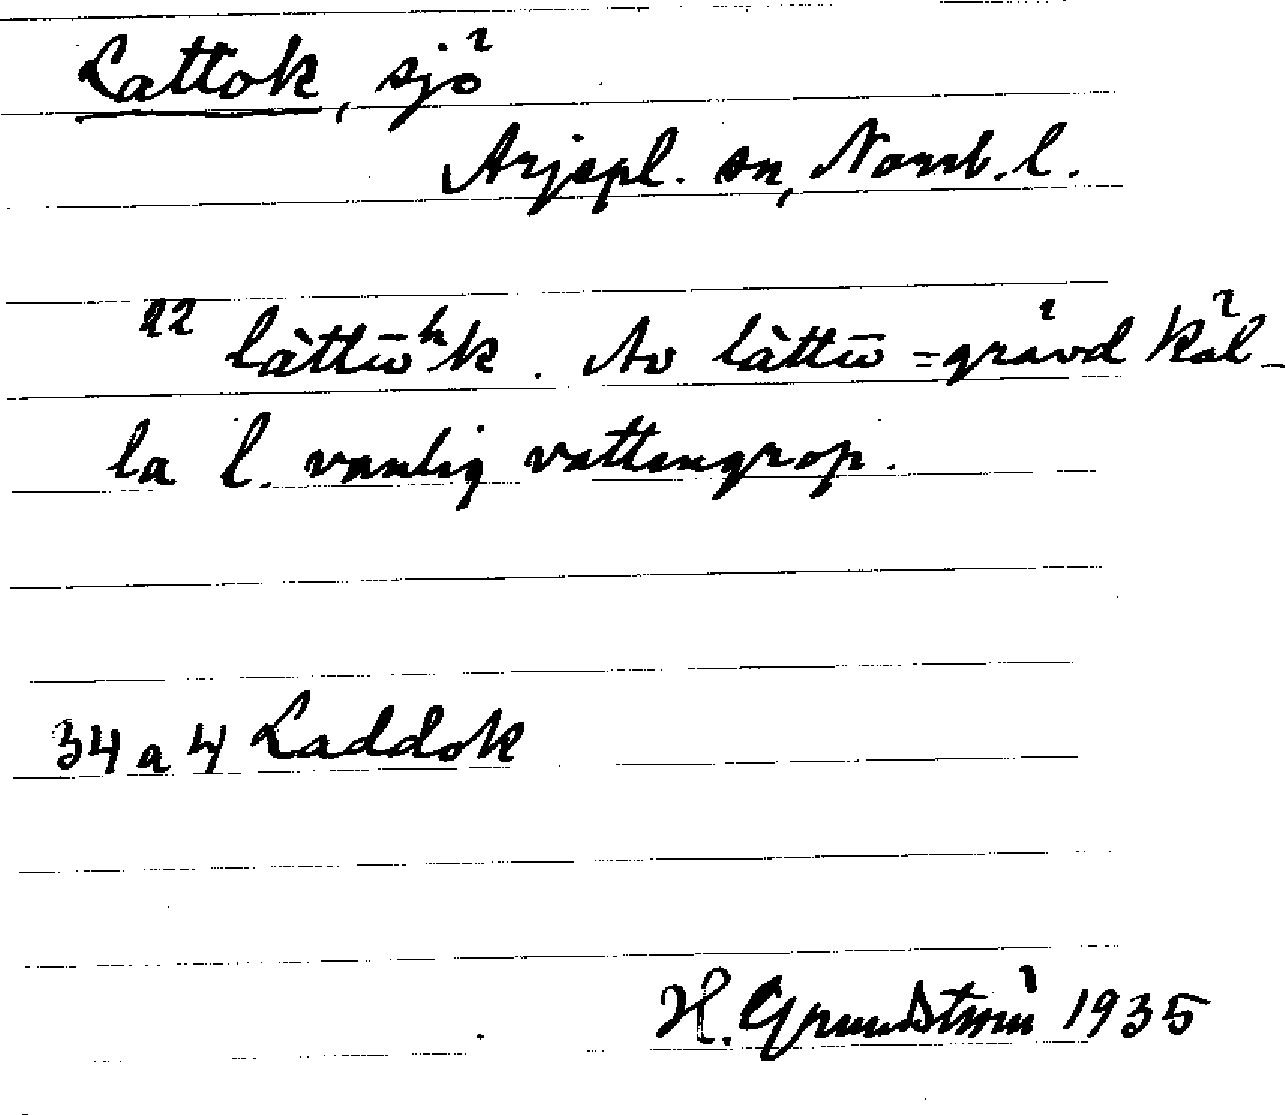 Lattok, sjö
Arjepl. sn, Norrb. l.
22 làttω̄ʰk. Av làttω̄ = grävd käl-
la l. vanlig vattengrop.
34 a 4 Laddok
H. Grundström 1935